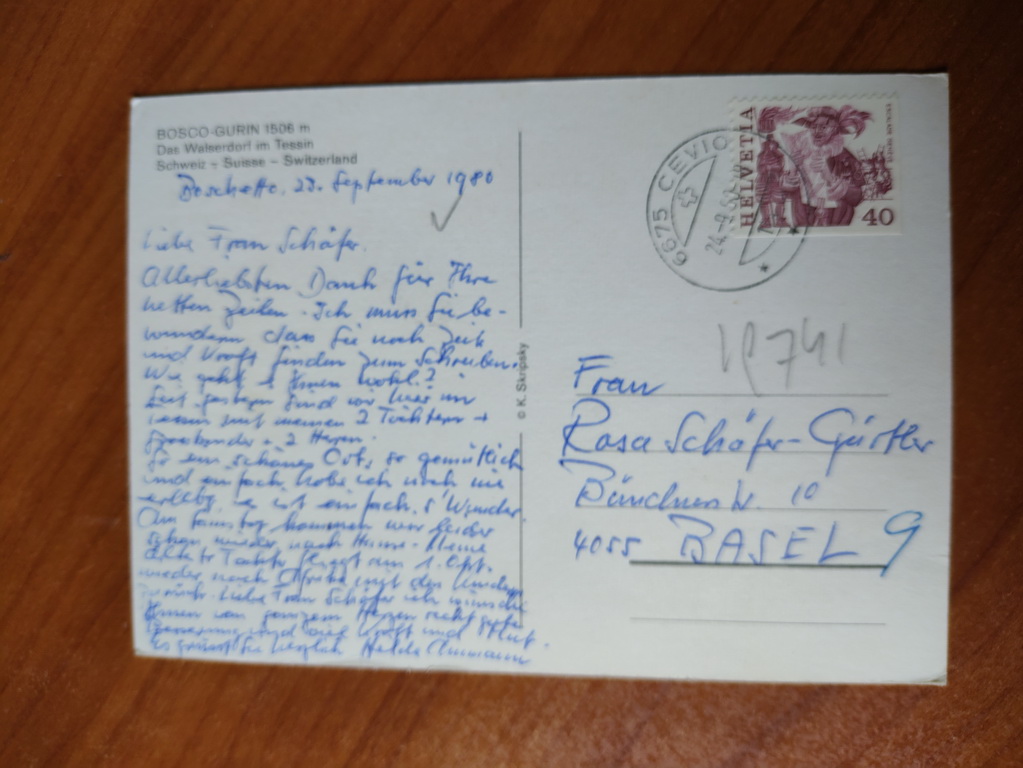 BOSCO-GURIN 1506 m
Das Walserdorf im Tessin
Schweiz - Suisse - Switzerland
Boschetto, 23. September 1980
Liebe Frau Schäfer.
Allerliebsten Dank für Ihre
netten Zeilen. Ich muss Sie be-
wundern dass Sie noch Zeit
und Kraft finden zum Schreiben.
Wie geht es Ihnen wohl?
Seit gestern sind wir hier im
Tessin mit meinen 2 Töchtern +
+ 2 Herren.
So ein schöner Ort, so gemütlich
und einfach habe ich noch nie
erlebt, es ist einfach s'Wunder.
Am Samstag kommen wir leider
schon wieder nach Hause. Meine
Tochter fliegt am 1. Okt.
wieder nach Afrika mit den Kindern
zurück. Liebe Frau Schäfer ich wünsche
Ihnen von ganzem Herzen recht gute
Besserung und viel Kraft und Mut.
Es grüsst Sie herzlich Hulda Ammann
© K. Skripsky
6675 CEVIO
24.-9.80
HELVETIA
40
741
Frau
Rosa Schäfer-Gürtler
10
4055 BASEL 9